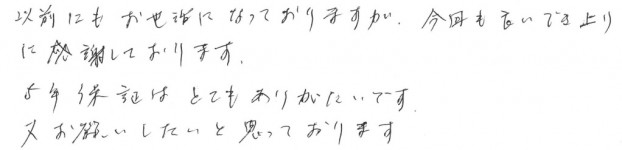 以前にもお世話になっておりますが、今回も良いでき上り
に感謝しております。
5年保証はとてもありがたいです
又お願いしたいと思っております